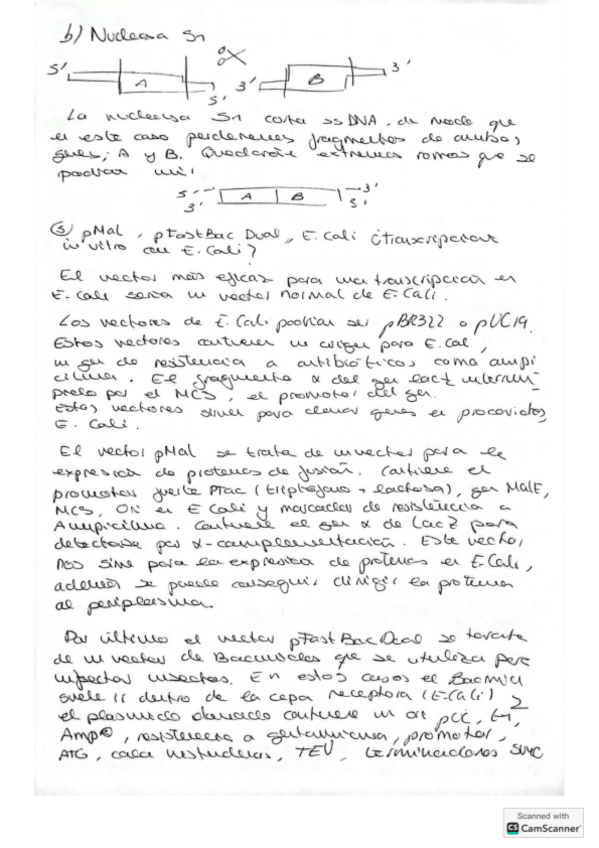 b) Nucleasa S1
5' A 5' 3' B 3'
La nucleasa S1 corta ssDNA, de modo que
en este caso perderemos fragmentos de ambos
genes; A y B. Quedarán extremos romos que se
podrían unir
5' A B 3'
3' 5'
⑤ pMal, pFastBac Dual, E. Coli ¿transcripción
in vitro con E. Coli?
El vector más eficaz para una transcripción en
E. coli sería un vector normal de E. Coli.
Los vectores de E. Coli podrían ser pBR322 o pUC19.
Estos vectores contienen un origen para E. Col,
un gen de resistencia a antibióticos como ampi
cilina. El fragmento α del gen lacZ interrum
pido por el MCS, el promotor del gen.
Estos vectores sirven para clonar genes en procariotas,
E. Coli.
El vector pMal se trata de un vector para la
expresión de proteínas de fusión. Contiene el
promotor fuerte Ptac (triptófano + lactosa), gen MalE,
MCS, Ori en E Coli y marcador de resistencia a
Ampicilina. Contiene el gen α de LacZ para
detectarse por α-complementación. Este vector
nos sirve para la expresión de proteínas en E. Coli,
además se puede conseguir dirigir la proteína
al periplasma.
Por último el vector pFastBacDual se tarata
de un vector de Baculovirus que se utiliza para
infectar insectos. En estos casos el Bacmid
suele ir dentro de la cepa receptora (E. Coli) y
el plásmido donador contiene un ori pUC, f1,
AmpR, resistencia a gentamicina, promotor,
ATG, cola histidinas, TEV, terminadores SV40
Scanned with
CS CamScanner